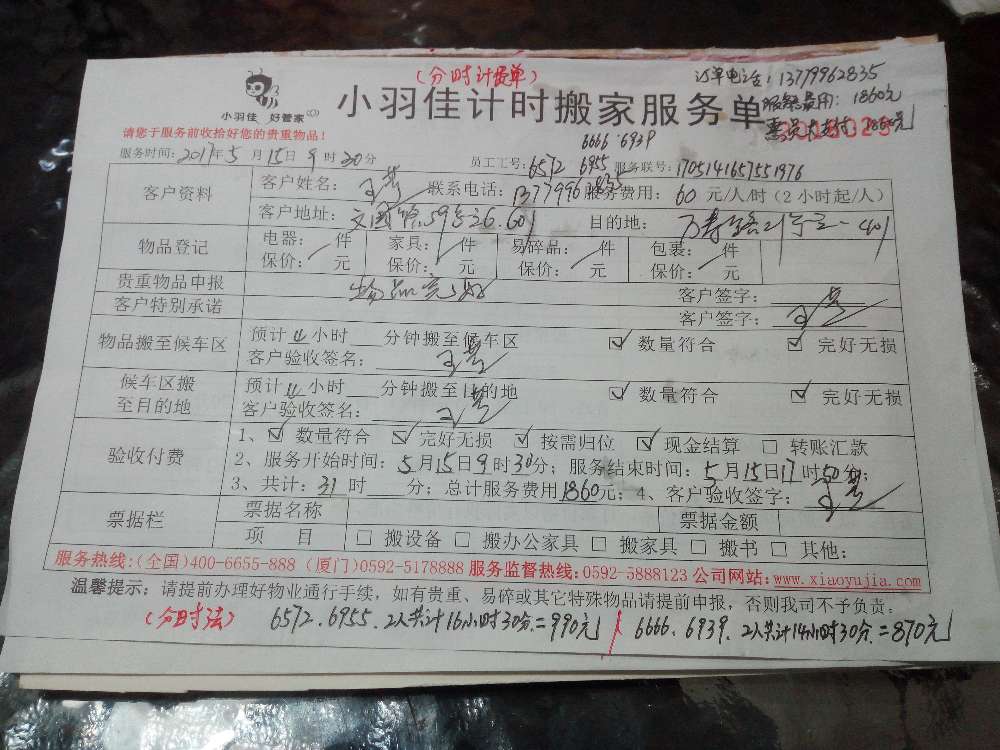 (分时计费单)
订单电话：13779962835
服务费用：1860元
小羽佳 好管家
小羽佳计时搬家服务单
请您于服务前收拾好您的贵重物品！
6666 6939
服务时间：2017年5月15日9时30分 员工工号：6572 6955 服务联号：1705141657551976
客户资料 客户姓名： 联系电话： 服务费用：60元/人/时（2小时起/人）
客户地址：文园路59号 601 目的地：
物品登记 电器： 件 家具： 件 易碎品： 件 包裹： 件
保价： 元 保价： 元 保价： 元 保价： 元
贵重物品申报 物品完好 客户签字：
客户特别承诺 客户签字：
物品搬至候车区 预计 小时 分钟搬至候车区 ☑ 数量符合 ☑ 完好无损
客户验收签名：
候车区搬至目的地 预计 小时 分钟搬至目的地 ☑ 数量符合 ☑ 完好无损
客户验收签名：
验收付费 1、☑ 数量符合 ☑ 完好无损 ☑ 按需归位 ☑ 现金结算 □ 转账汇款
2、服务开始时间：5月15日9时30分；服务结束时间：5月15日17时50分；
3、共计：31时 分；总计服务费用1860元；4、客户验收签字：
票据栏 票据名称 票据金额
项 目 □ 搬设备 □ 搬办公家具 □ 搬家具 □ 搬书 □ 其他：
服务热线：(全国)400-6655-888 (厦门)0592-5178888 服务监督热线：0592-5888123 公司网站：www.xiaoyujia.com
温馨提示：请提前办理好物业通行手续，如有贵重、易碎或其它特殊物品请提前申报，否则我司不予负责；
(分时法) 6572、6955、2人共计16小时30分=990元 / 6666、6939、2人共计14小时30分=870元